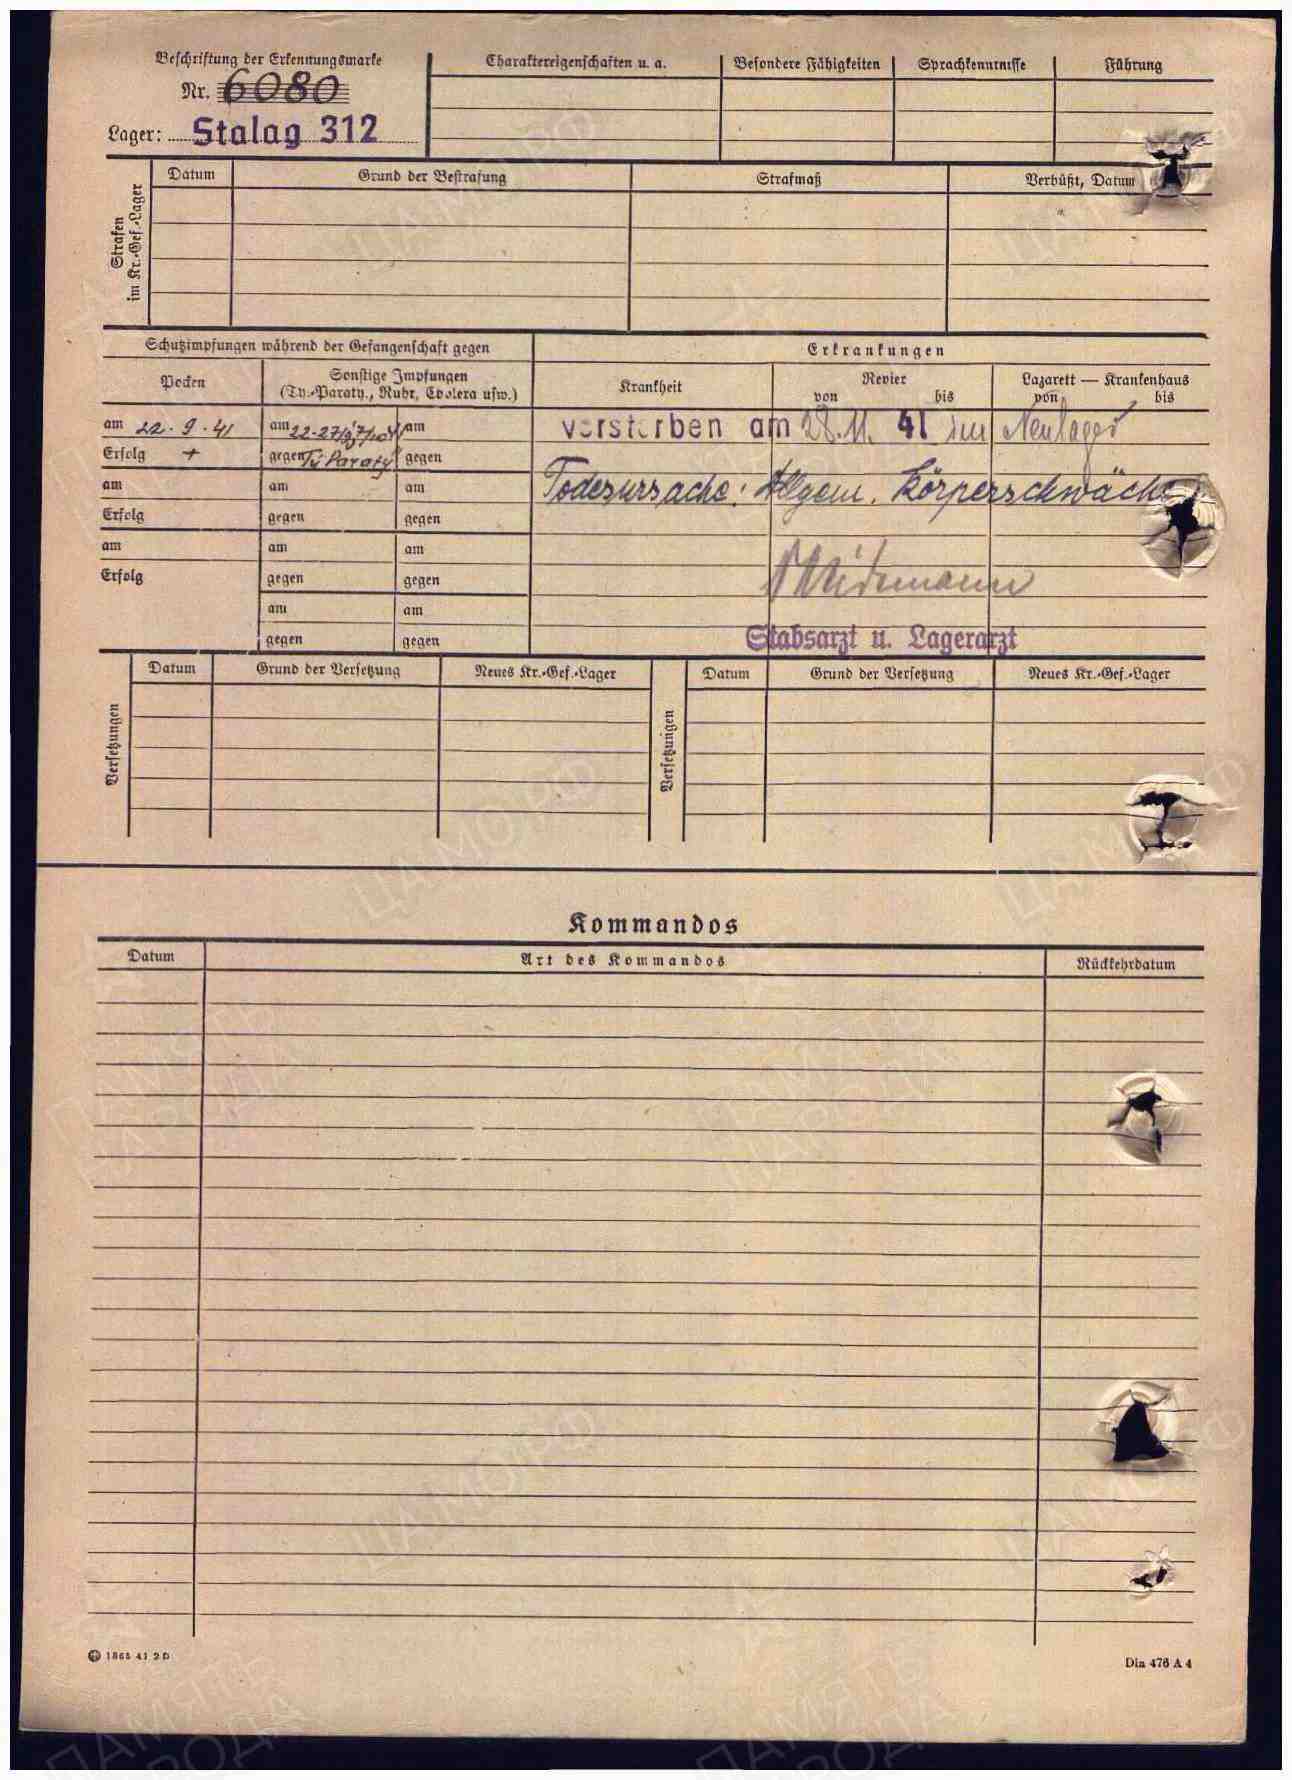 Beschriftung der Erkennungsmarke
Nr. 6080
Lager: Stalag 312
Charaktereigenschaften u. a.
Besondere Fähigkeiten
Sprachkenntnisse
Führung
Strafen im Kr.-Gef.-Lager
Datum
Grund der Bestrafung
Strafmaß
Verbüßt, Datum
Schutzimpfungen während der Gefangenschaft gegen
Erkrankungen
Pocken
Sonstige Impfungen
(Ty.-Paraty., Ruhr, Cholera usw.)
Krankheit
Revier
von bis
Lazarett — Krankenhaus
von bis
am 22.9.41
am
am
Erfolg +
gegen Ty Paraty
gegen
verstorben am 28.11. 41 im Neulager
Todesursache: Allgem. Körperschwäche
am
am
am
Erfolg
gegen
gegen
am
am
am
Erfolg
gegen
gegen
am
am
gegen
gegen
Stabsarzt u. Lagerarzt
Versetzungen
Datum
Grund der Versetzung
Neues Kr.-Gef.-Lager
Versetzungen
Datum
Grund der Versetzung
Neues Kr.-Gef.-Lager
Kommandos
Datum
Art des Kommandos
Rückkehrdatum
1865 41 2 D
Din 476 A 4
ПАМЯТЬ НАРОДА
ЦАМО.РФ